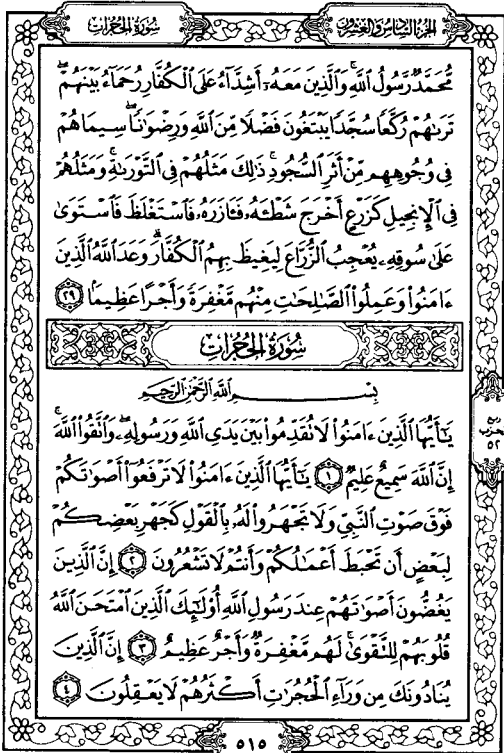 سُورَةُ الحُجُرَاتِ
الجُزْءُ السَّادِسُ وَالعِشْرُونَ
مُّحَمَّدٌ رَّسُولُ ٱللَّهِ وَٱلَّذِينَ مَعَهُۥٓ أَشِدَّآءُ عَلَى ٱلْكُفَّارِ رُحَمَآءُ بَيْنَهُمْ ۖ
تَرَىٰهُمْ رُكَّعًا سُجَّدًا يَبْتَغُونَ فَضْلًا مِّنَ ٱللَّهِ وَرِضْوَٰنًا ۖ سِيمَاهُمْ
فِى وُجُوهِهِم مِّنْ أَثَرِ ٱلسُّجُودِ ۚ ذَٰلِكَ مَثَلُهُمْ فِى ٱلتَّوْرَىٰةِ ۚ وَمَثَلُهُمْ
فِى ٱلْإِنجِيلِ كَزَرْعٍ أَخْرَجَ شَطْـَٔهُۥ فَـَٔازَرَهُۥ فَٱسْتَغْلَظَ فَٱسْتَوَىٰ
عَلَىٰ سُوقِهِۦ يُعْجِبُ ٱلزُّرَّاعَ لِيَغِيظَ بِهِمُ ٱلْكُفَّارَ ۗ وَعَدَ ٱللَّهُ ٱلَّذِينَ
ءَامَنُوا۟ وَعَمِلُوا۟ ٱلصَّـٰلِحَـٰتِ مِنْهُم مَّغْفِرَةً وَأَجْرًا عَظِيمًۢا ٢٩
سُورَةُ الحُجُرَاتِ
بِسْمِ ٱللَّهِ ٱلرَّحْمَـٰنِ ٱلرَّحِيمِ
يَـٰٓأَيُّهَا ٱلَّذِينَ ءَامَنُوا۟ لَا تُقَدِّمُوا۟ بَيْنَ يَدَىِ ٱللَّهِ وَرَسُولِهِۦ ۖ وَٱتَّقُوا۟ ٱللَّهَ ۚ
إِنَّ ٱللَّهَ سَمِيعٌ عَلِيمٌ ١ يَـٰٓأَيُّهَا ٱلَّذِينَ ءَامَنُوا۟ لَا تَرْفَعُوٓا۟ أَصْوَٰتَكُمْ
فَوْقَ صَوْتِ ٱلنَّبِىِّ وَلَا تَجْهَرُوا۟ لَهُۥ بِٱلْقَوْلِ كَجَهْرِ بَعْضِكُمْ
لِبَعْضٍ أَن تَحْبَطَ أَعْمَـٰلُكُمْ وَأَنتُمْ لَا تَشْعُرُونَ ٢ إِنَّ ٱلَّذِينَ
يَغُضُّونَ أَصْوَٰتَهُمْ عِندَ رَسُولِ ٱللَّهِ أُو۟لَـٰٓئِكَ ٱلَّذِينَ ٱمْتَحَنَ ٱللَّهُ
قُلُوبَهُمْ لِلتَّقْوَىٰ ۚ لَهُم مَّغْفِرَةٌ وَأَجْرٌ عَظِيمٌ ٣ إِنَّ ٱلَّذِينَ
يُنَادُونَكَ مِن وَرَآءِ ٱلْحُجُرَٰتِ أَكْثَرُهُمْ لَا يَعْقِلُونَ ٤
ربع
حزب
٥٢
٥١٥